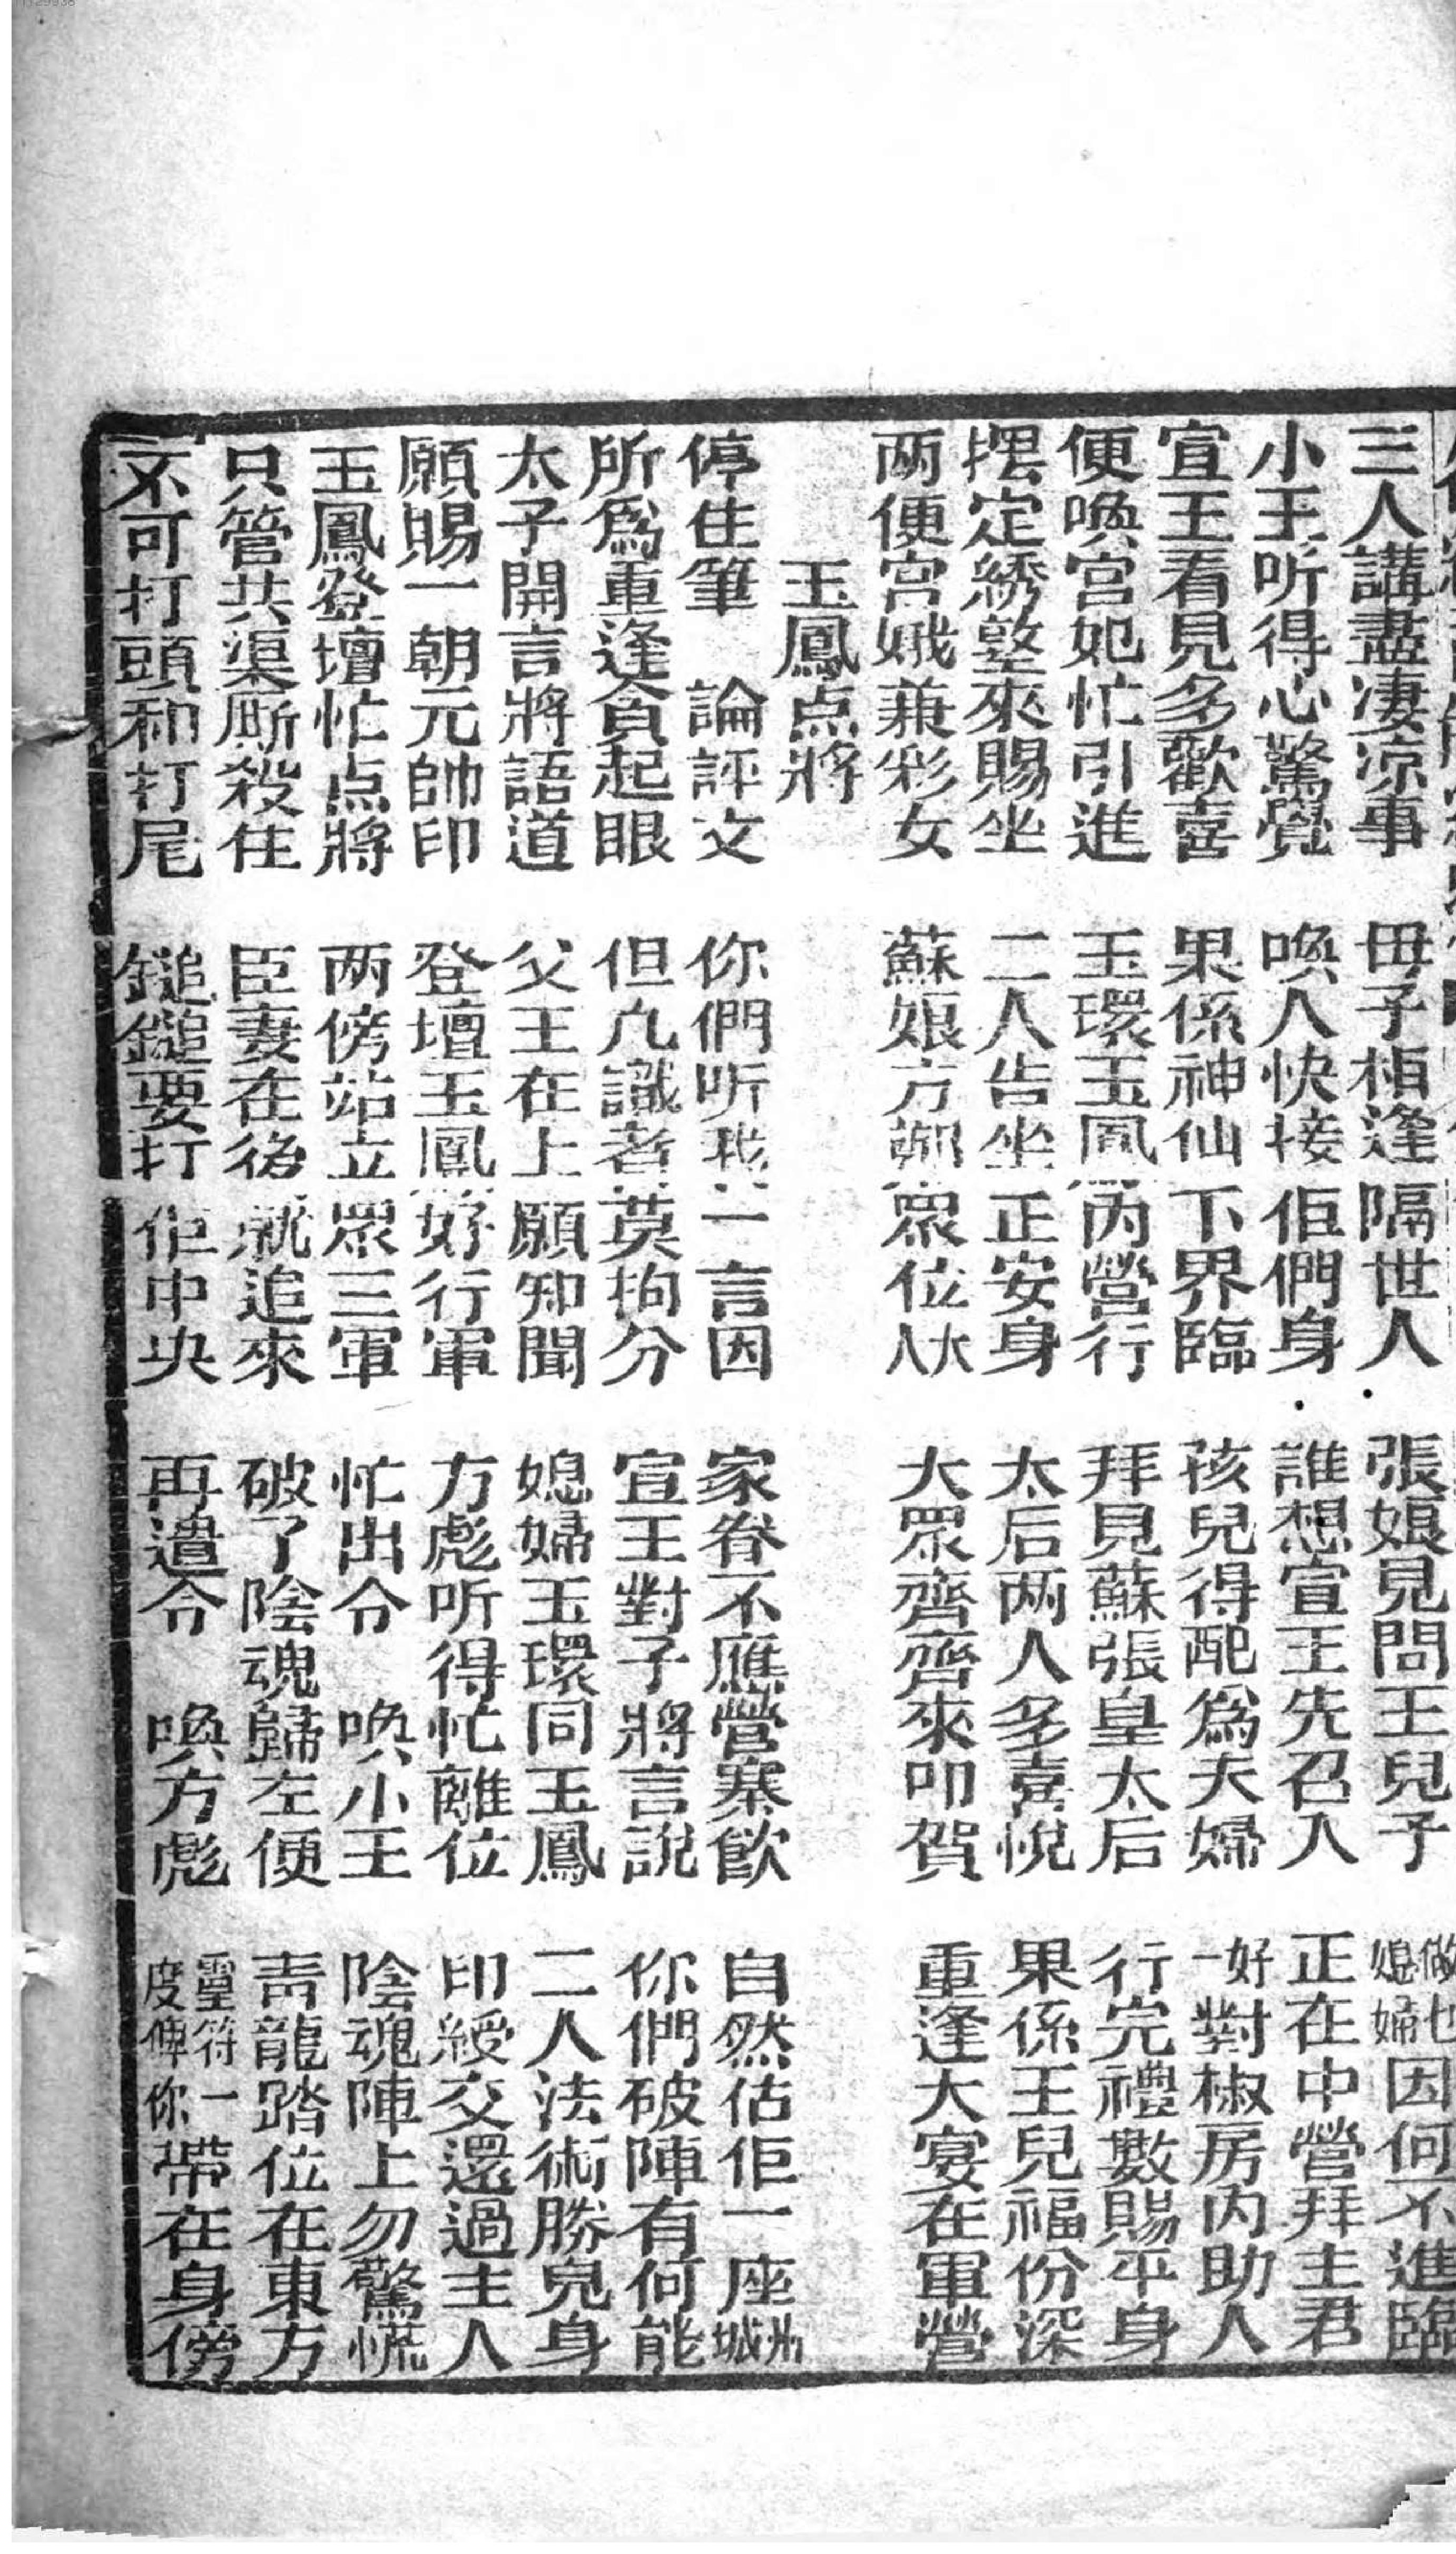 三人講盡凄凉事 毋子相逢隔世人 張娘見問王兒子 媳婦做也因何不進臨
小王听得心驚覺 喚人快接佢們身 誰想宣王先召入 正在中營拜主君
宣王看見多歡喜 果係神仙下界臨 孩兒得配爲夫婦 一好對椒房内助人
便喚宫妃忙引進 玉環玉鳳丙營行 拜見蘇張皇太后 行完禮數賜平身
摆定綉墪來賜坐 二人告坐正安身 太后两人多喜悅 果係王兒福份深
两便宫娥兼彩女 蘇娘方卿眾位大人 大眾齊齊來叩賀 重逢大宴在軍營
玉鳳点將
停住筆 論評文 你們听我一言因 家眷不應營寨飲 自然估佢一座州城
所爲重逢貪起眼 但凢識者莫拘分 宣王對子將言說 你們破陣有何能
太子開言將語道 父王在上願知聞 媳婦玉環同玉鳳 二人法術勝兒身
願賜一朝元帥印 登壇玉鳳好行軍 方彪听得忙離位 印綬交還過主人
玉鳳登壇忙点將 两傍站立眾三軍 忙出令 喚小王 陰魂陣上勿驚慌
只管共渠厮殺住 臣妻在後就追來 破了陰魂歸左便 青龍踏位在東方
不可打頭和打尾 鎚鎚要打佢中央 再遣令 喚方彪 靈符一度俾你帶在身傍